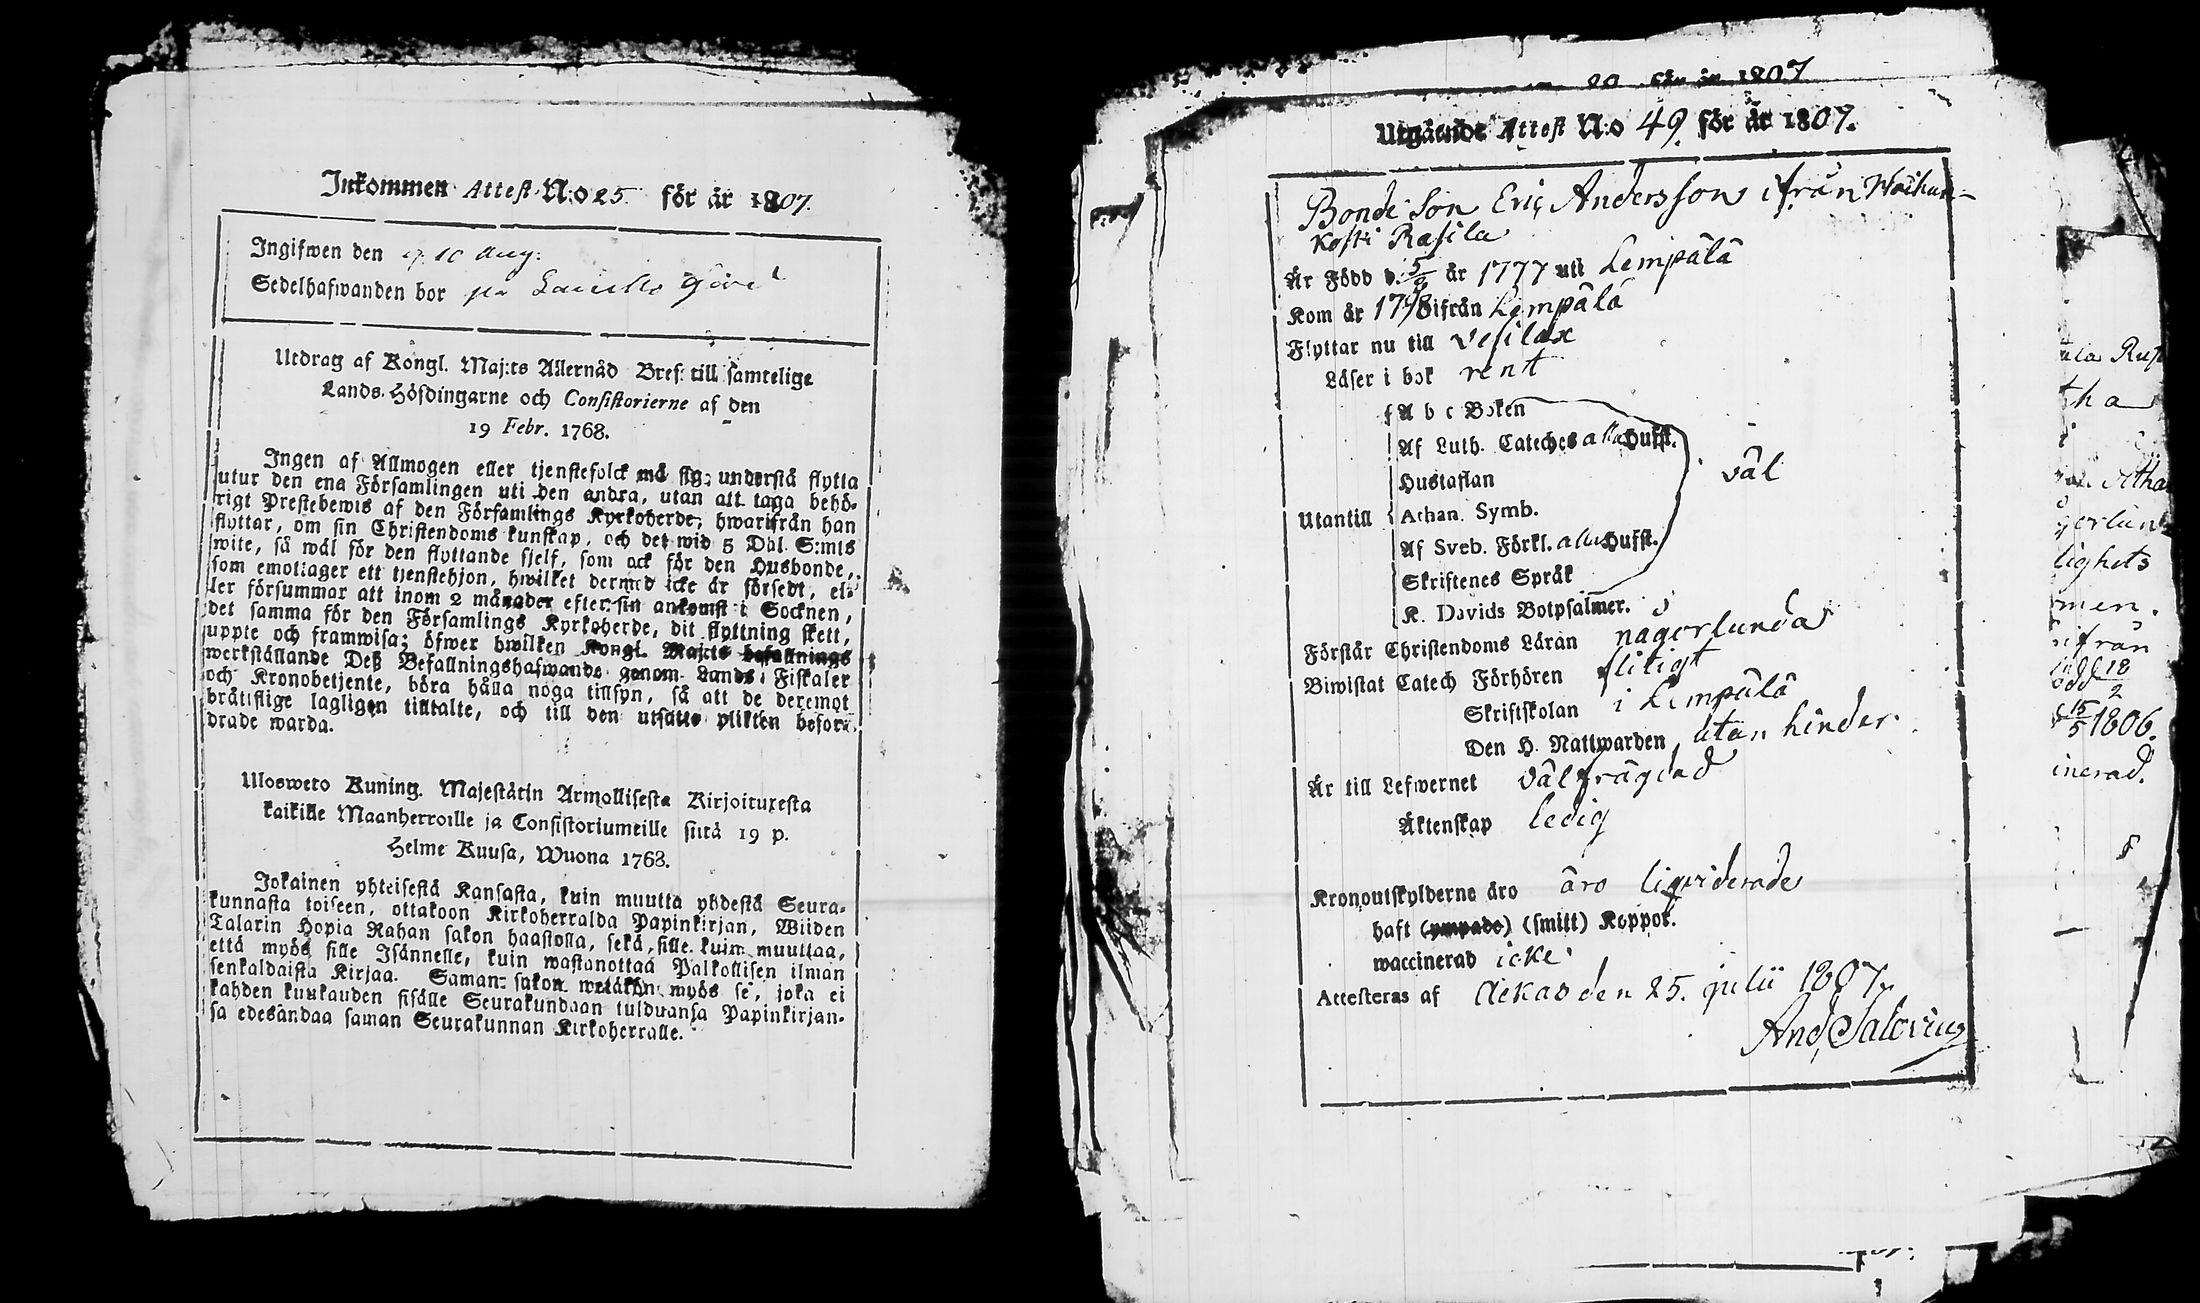 Inkommen Attest N:o 25. för år 1807.
Ingifwen den 10 Aug:
Sedelhafwanden bor på Laucko Gård
Utdrag af Kongl. Maj:ts Allernåd Bref: till samtelige
Lands-Höfdingarne och Consistorierne af den
19 Febr. 1768.
Ingen af Allmogen eller tjenstefolck må sig understå flytta
utur den ena Församlingen uti den andra, utan att taga behö-
rigt Prestebewis af den Församlings Kyrkoherde, hwarifrån han
flyttar, om sin Christendoms kunskap, och det wid 5 Dal. S:mts
wite, så wäl för den flyttande sjelf, som ock för den Husbonde,
som emottager ett tjenstehjon, hwilket dermed icke är försedt, el-
ler försummar att inom 2 månader efter sin ankomst i Socknen,
det samma för den Församlings Kyrkoherde, dit flyttning skett,
uppte och framwisa; öfwer hwilken Kongl. Maj:ts befallnings
werkställande Deß Befallningshafwande genom Lands-Fiskaler
och Kronobetjente, böra hålla noga tillsyn, så att de deremot
bråtislige lagligen tilltalte, och till den utsatte plikten befor-
drade warda.
Ulosweto Kuning. Majestätin Armollisesta Kirjoituxesta
kaikille Maanherroille ja Consistoriumeille siitä 19 p.
Helme Kuusa, Wuona 1768.
Jokainen yhteisestä Kansasta, kuin muutta yhdestä Seura-
kunnasta toiseen, ottakoon Kirkoherralda Papinkirjan, Wiiden
Talarin Hopia Rahan sakon haastolla, sekä sille kuin muuttaa,
että myös sille Isännelle, kuin wastanottaa Palkollisen ilman
senkaldaista Kirjaa. Saman sakon wetäkön myös se, joka ei
kahden kuukauden sisälle Seurakundaan tulduansa Papinkirjan-
sa edesandaa saman Seurakunnan Kirkoherralle.
för år 1807
Utgående Attest N:o 49. för år 1807.
Bonde Son Eric Andersson ifrån Waihun-
kosti Rasila
Är Född d. 5/9 år 1777 uti Lempälä
Kom år 1798 ifrån Lempälä
Flyttar nu till Vesilax
Läser i bok rent
A b c Boken
Af Luth. Cateches alla Hufst.
Hustaflan väl
Utantill Athan. Symb.
Af Sveb. Förkl. alla Hufst.
Skriftenes Språk
K. Davids Botpsalmer.
Förstår Christendoms Läran någorlunda
Biwistat Catech Förhören flitigt
Skriftskolan i Lempälä
Den H. Nattwarden utan hinder.
Är till Lefwernet välfrägdad
Äktenskap ledig
Kronoutskylderne äro äro liqviderade
haft (ympade) (smitt) Koppor.
waccinerad icke
Attesteras af Ackas den 25. julii 1807.
And. Salovius
tha
lighets
men.
ifrån
18/2
15/5 1806.
inerad.